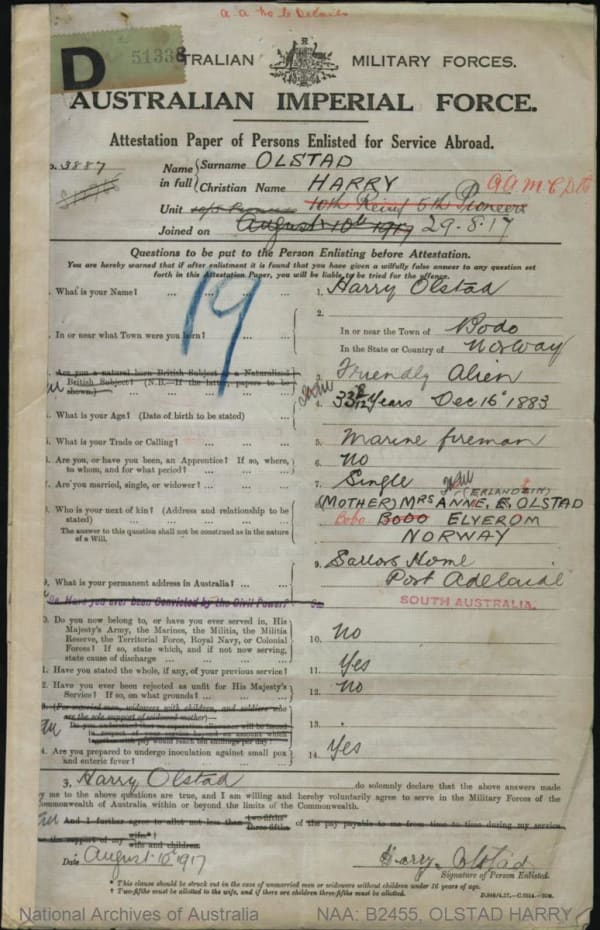 a.a. no 6 Details
D
51338
TRALIAN MILITARY FORCES.
AUSTRALIAN IMPERIAL FORCE.
Attestation Paper of Persons Enlisted for Service Abroad.
o. 3887
Name in full
Surname OLSTAD
Christian Name HARRY
A.A.M.C. Dts
Unit 10th Reinf 5th Pioneers
Joined on August 10th 1917 29.8.17
Questions to be put to the Person Enlisting before Attestation.
You are hereby warned that if after enlistment it is found that you have given a wilfully false answer to any question set
forth in this Attestation Paper, you will be liable to be tried for the offence.
19
. What is your Name? ... ... ... ...
1. Harry Olstad
. In or near what Town were you born? ... ...
2.
In or near the Town of Bodo
In the State or Country of Norway
. Are you a natural born British Subject or a Naturalized
British Subject? (N.B.—If the latter, papers to be
shown.)
3. Friendly Alien
. What is your Age? (Date of birth to be stated) ...
4. 33 8/12 Years Dec 16th 1883
. What is your Trade or Calling? ... ... ...
5. Marine fireman
. Are you, or have you been, an Apprentice? If so, where,
to whom, and for what period? ... ... ...
6. No
. Are you married, single, or widower? ... ...
7. Single
. Who is your next of kin? (Address and relationship to be
stated) ... ... ... ...
The answer to this question shall not be construed as in the nature
of a Will.
(ERLANDZIN)
(MOTHER) MRS ANNE. E. OLSTAD
Bobo BODO ELYEROM
NORWAY
. What is your permanent address in Australia? ... ...
9. Sailors Home
Port Adelaide
SOUTH AUSTRALIA.
9a. Have you ever been Convicted by the Civil Power? 9a.
0. Do you now belong to, or have you ever served in, His
Majesty's Army, the Marines, the Militia, the Militia
Reserve, the Territorial Force, Royal Navy, or Colonial
Forces? If so, state which, and if not now serving,
state cause of discharge ... ... ...
10. No
1. Have you stated the whole, if any, of your previous service?
11. Yes
2. Have you ever been rejected as unfit for His Majesty's
Service? If so, on what grounds? ... ...
12. No
3. (For married men, widowers with children, and soldiers who
are the sole support of widowed mother)—
Do you understand that no
in respect of your service beyond an amount which
together with pay would reach ten shillings per day?
13.
4. Are you prepared to undergo inoculation against small pox
and enteric fever? ... ... ...
14. Yes
I, Harry Olstad do solemnly declare that the above answers made
by me to the above questions are true, and I am willing and hereby voluntarily agree to serve in the Military Forces of the
Commonwealth of Australia within or beyond the limits of the Commonwealth.
And I further agree to allot not less than two-fifths three-fifths of the pay payable to me from time to time during my service
the support of my wife* wife and children
Date August 10th 1917
Harry Olstad
Signature of Person Enlisted.
* This clause should be struck out in the case of unmarried men or widowers without children under 16 years of age.
† Two-fifths must be allotted to the wife, and if there are children three-fifths must be allotted.
National Archives of Australia
NAA: B2455, OLSTAD HARRY